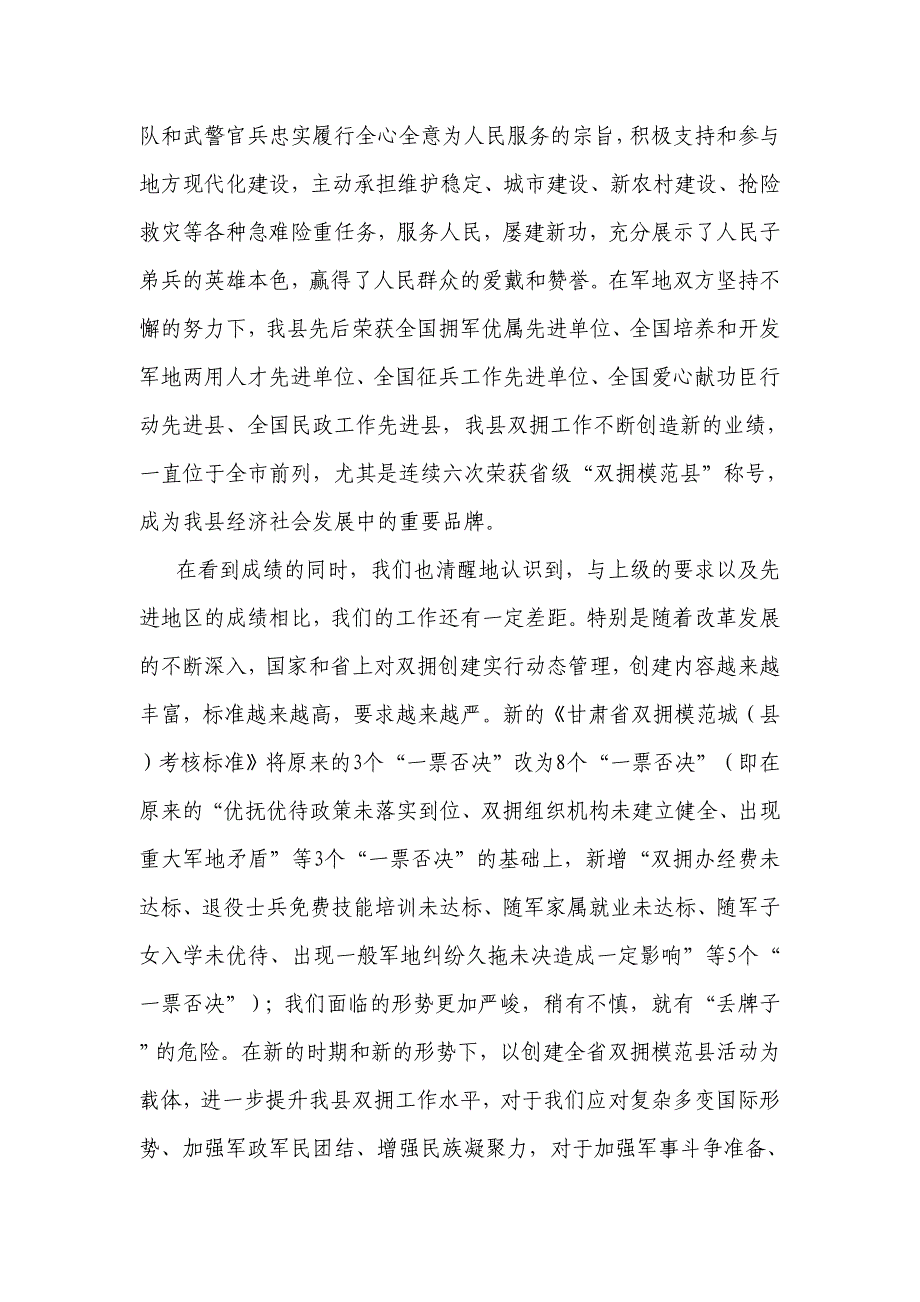 队和武警官兵忠实履行全心全意为人民服务的宗旨，积极支持和参与
地方现代化建设，主动承担维护稳定、城市建设、新农村建设、抢险
救灾等各种急难险重任务，服务人民，屡建新功，充分展示了人民子
弟兵的英雄本色，赢得了人民群众的爱戴和赞誉。在军地双方坚持不
懈的努力下，我县先后荣获全国拥军优属先进单位、全国培养和开发
军地两用人才先进单位、全国征兵工作先进单位、全国爱心献功臣行
动先进县、全国民政工作先进县，我县双拥工作不断创造新的业绩，
一直位于全市前列，尤其是连续六次荣获省级“双拥模范县”称号，
成为我县经济社会发展中的重要品牌。
在看到成绩的同时，我们也清醒地认识到，与上级的要求以及先
进地区的成绩相比，我们的工作还有一定差距。特别是随着改革发展
的不断深入，国家和省上对双拥创建实行动态管理，创建内容越来越
丰富，标准越来越高，要求越来越严。新的《甘肃省双拥模范城（县
）考核标准》将原来的3个“一票否决”改为8个“一票否决”（即在
原来的“优抚优待政策未落实到位、双拥组织机构未建立健全、出现
重大军地矛盾”等3个“一票否决”的基础上，新增“双拥办经费未
达标、退役士兵免费技能培训未达标、随军家属就业未达标、随军子
女入学未优待、出现一般军地纠纷久拖未决造成一定影响”等5个“
一票否决”）；我们面临的形势更加严峻，稍有不慎，就有“丢牌子
”的危险。在新的时期和新的形势下，以创建全省双拥模范县活动为
载体，进一步提升我县双拥工作水平，对于我们应对复杂多变国际形
势、加强军政军民团结、增强民族凝聚力，对于加强军事斗争准备、